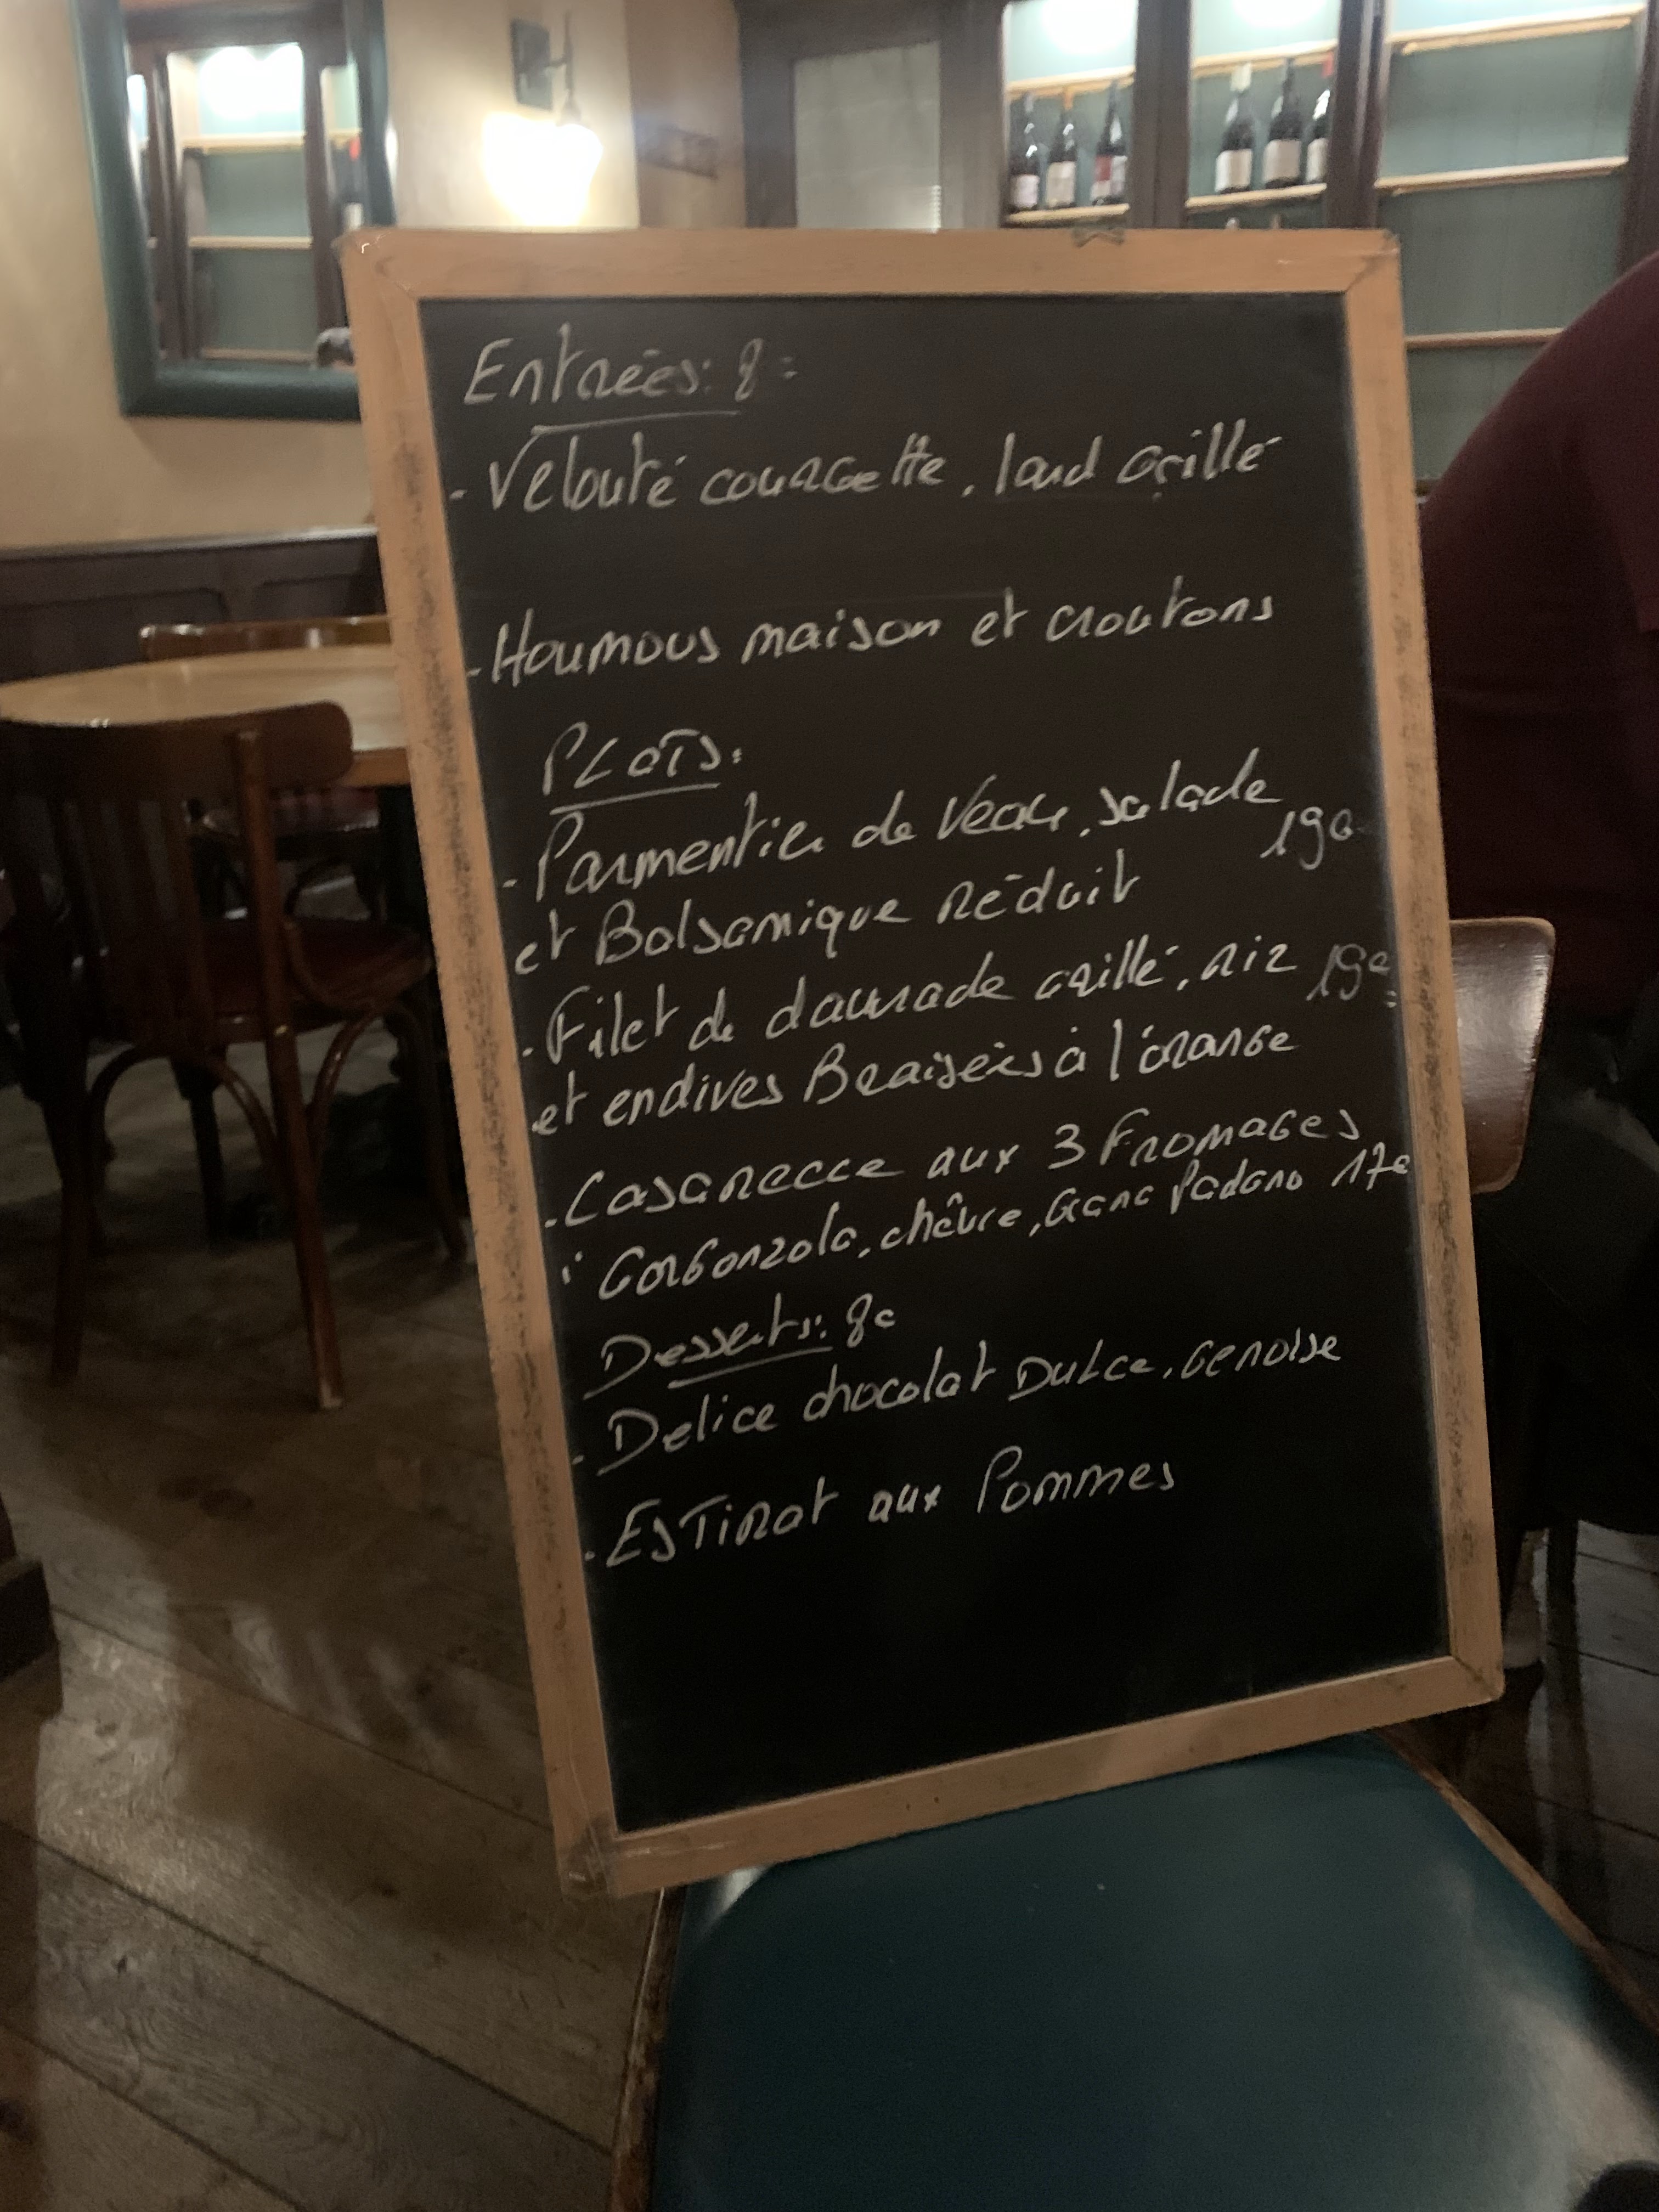 Entrées: 8€
- Velouté courgette, lard grillé
- Houmous maison et croutons
PLATS:
- Parmentier de Veau, salade 19€
et Balsamique réduit
- Filet de daurade grillé, riz 19€
et endives Braisées à l'orange
- Casarecce aux 3 Fromages
: Gorgonzola, chèvre, Grana Padano 17€
Desserts: 8€
- Delice chocolat DULCE, Genoise
- ESTIRAT aux Pommes